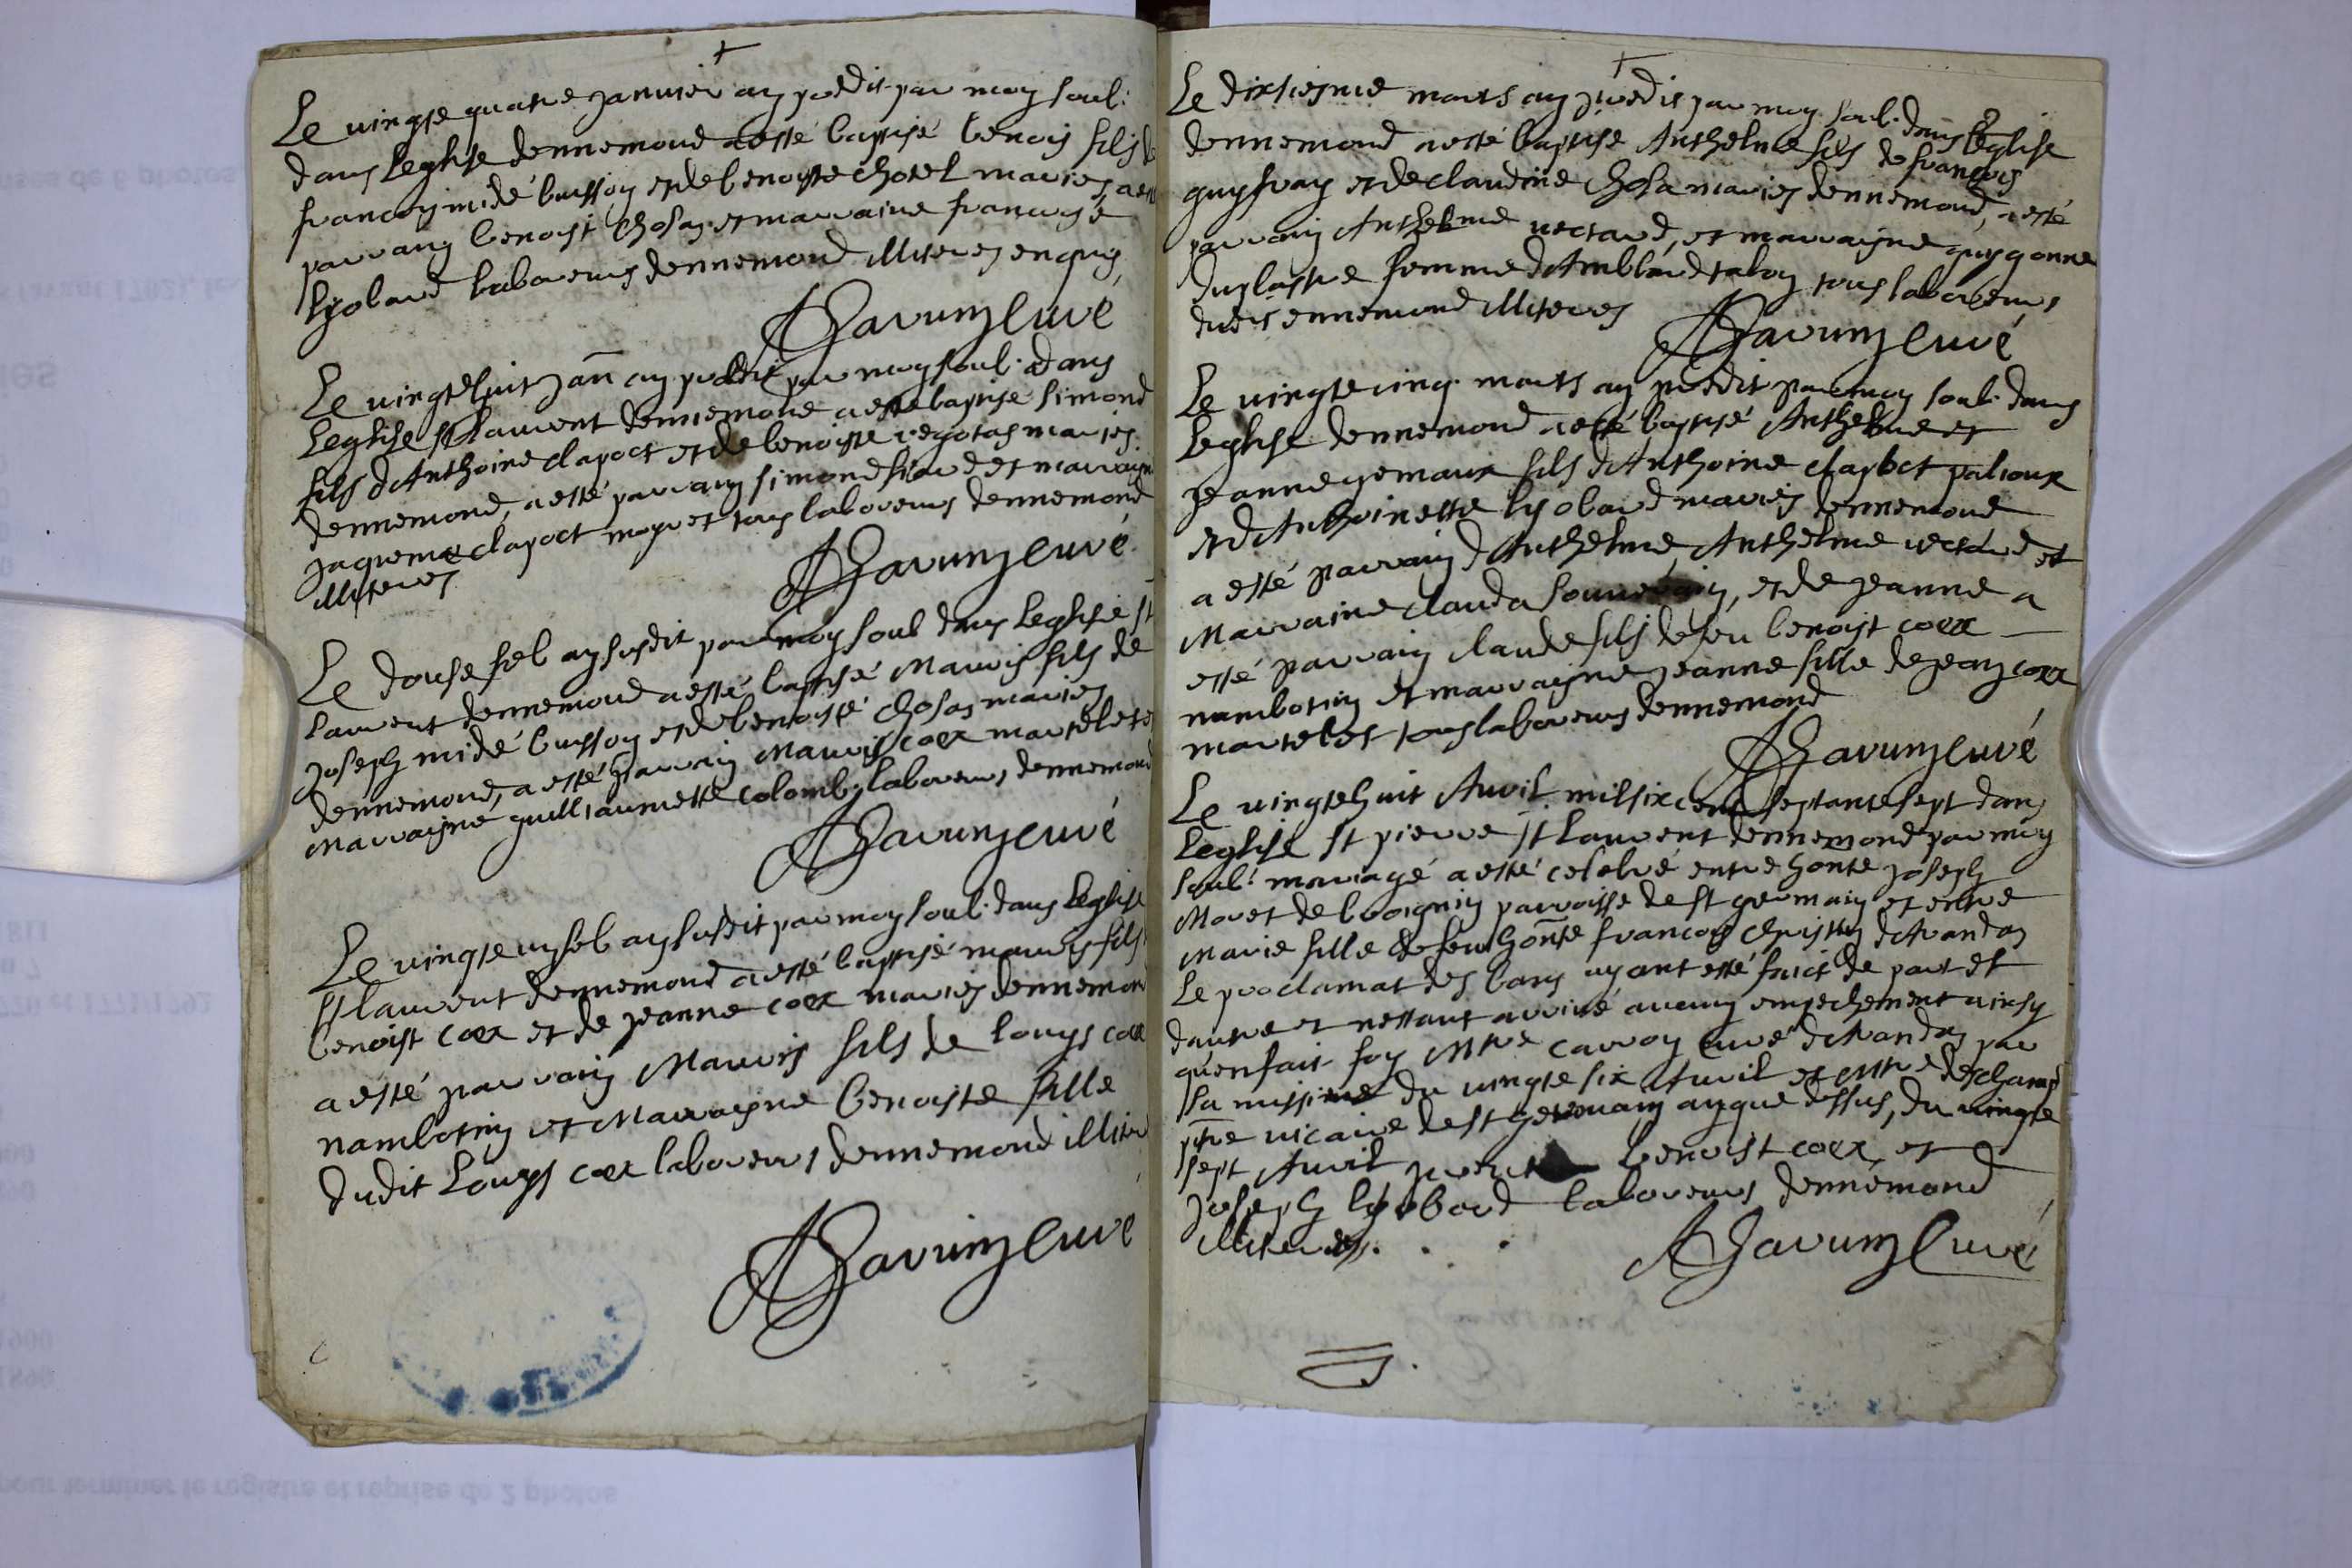 Le vingte quatre janvier an predit par moy soub:
dans leglise dennemond a esté baptisé benoist fils de
francoy midé buisson et de benoiste chosel mariés, a esté
parrain benoist chosas et marraine francoise
lyobard laboureurs dennemond illiteres enquis
A Ravum curé
Le vingtehuit jan an predit par moy soub. dans
leglise st laurent dennemond a esté baptisé simond
fils d'Anthoine clapoct et de benoiste mariés
dennemond, a esté parrain simond et marraine
jaqueme clapoct tous laboureurs dennemond
illiteres
A Ravum curé
Le douse feb an susdit par moy soub dans leglise st
laurent dennemond a esté baptisé Mauris fils de
joseph midé buisson et de benoiste chosas mariés
dennemond, a esté parrain Mauris coex martelet et
marrayne guilliaumette colomb, laboureurs dennemond
A Ravum curé
Le vingte un feb an susdit par moy soub. dans leglise
st laurent dennemond a esté baptisé mauris fils
benoist coex et de jeanne coex mariés dennemond
a esté parrain Mauris fils de louys coex
nambotin et Marrayne benoiste fille
dudit Louys coex laboureurs dennemond illiteres
A Ravum curé
Le dixiesme mars an predit par moy soub. dans leglise
dennemond a esté baptisé Anthelme fils de francois
guyfray et de claudine chosa mariés dennemond, a esté
parrain Anthelme rectard, et marrayne guygonne
duplastre femme d'Amblard taboy tous laboureurs
dudit ennemond illiteres
A Ravum curé
Le vingte cinq mars an predit par moy soub. dans
leglise dennemond a esté baptisé Anthelme et
jeanne gemaux fils d'Anthoine clapoct palioux
et d'Anthoinette lyobard mariés dennemond
a esté parrain d'Anthelme, Anthelme rectard et
Marraine clauda, et de jeanne a
esté parrain claude fils de feu benoist coex
nambotin et marrayne jeanne fille de jean coex
martelet tous laboureurs dennemond
A Ravum curé
Le vingtehuit Avril mil six cent septante sept dans
leglise st pierre st laurent dennemond par moy
soub: mariage a esté celebré entre honte joseph
Moret de brognin parroisse de st germain et entre
Marie fille de feu honte francois christin d'Arandas
le proclamat des bans ayant esté faict de part et
dautre et nestant arrivé aucun empechement ainsy
quenfait foy Mre carroy curé d'Arandas par
sa missive du vingte six Avril et Mre deschamps
ptre vicaire de st germain an que dessus, du vingte
sept Avril benoist coex et
joseph lyobard laboureurs dennemond
illiteres.
A Ravum curé